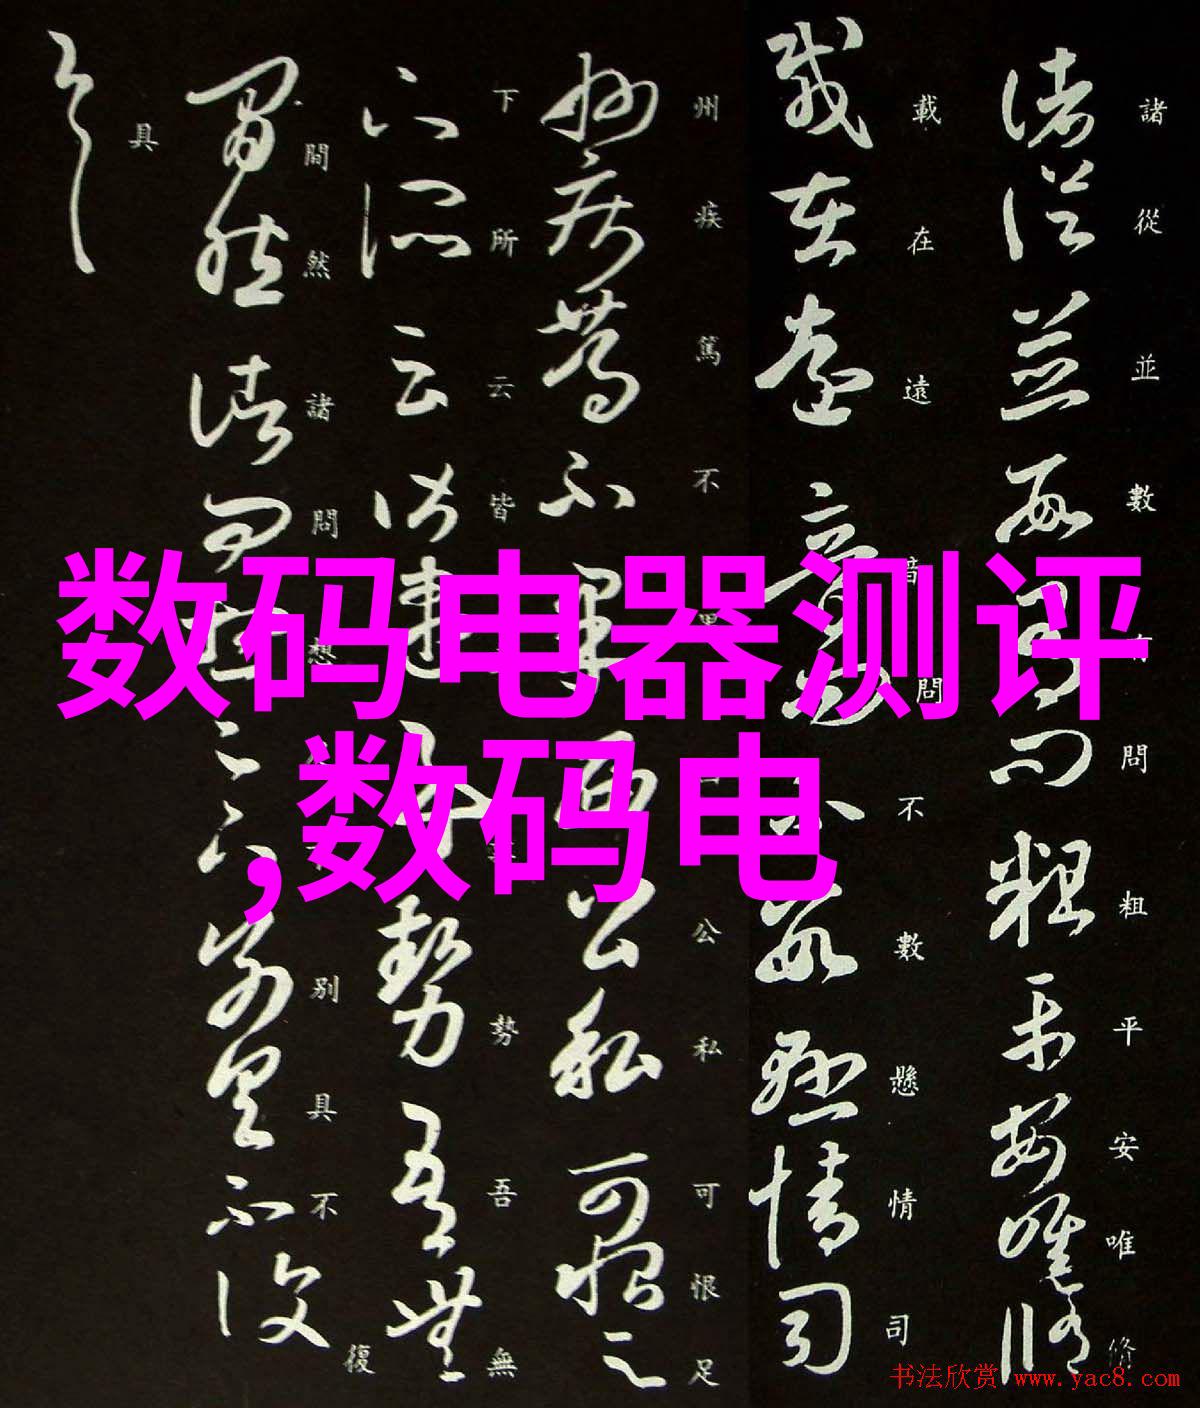 諸從並數有問粗平安唯修
載在遠音問不數懸情司
州疾篤不果公私可恨足
下所云皆勢吾無
間然諸問想別具不復
具
数码电器测评
,数码电
书法欣赏 www.yac8.com